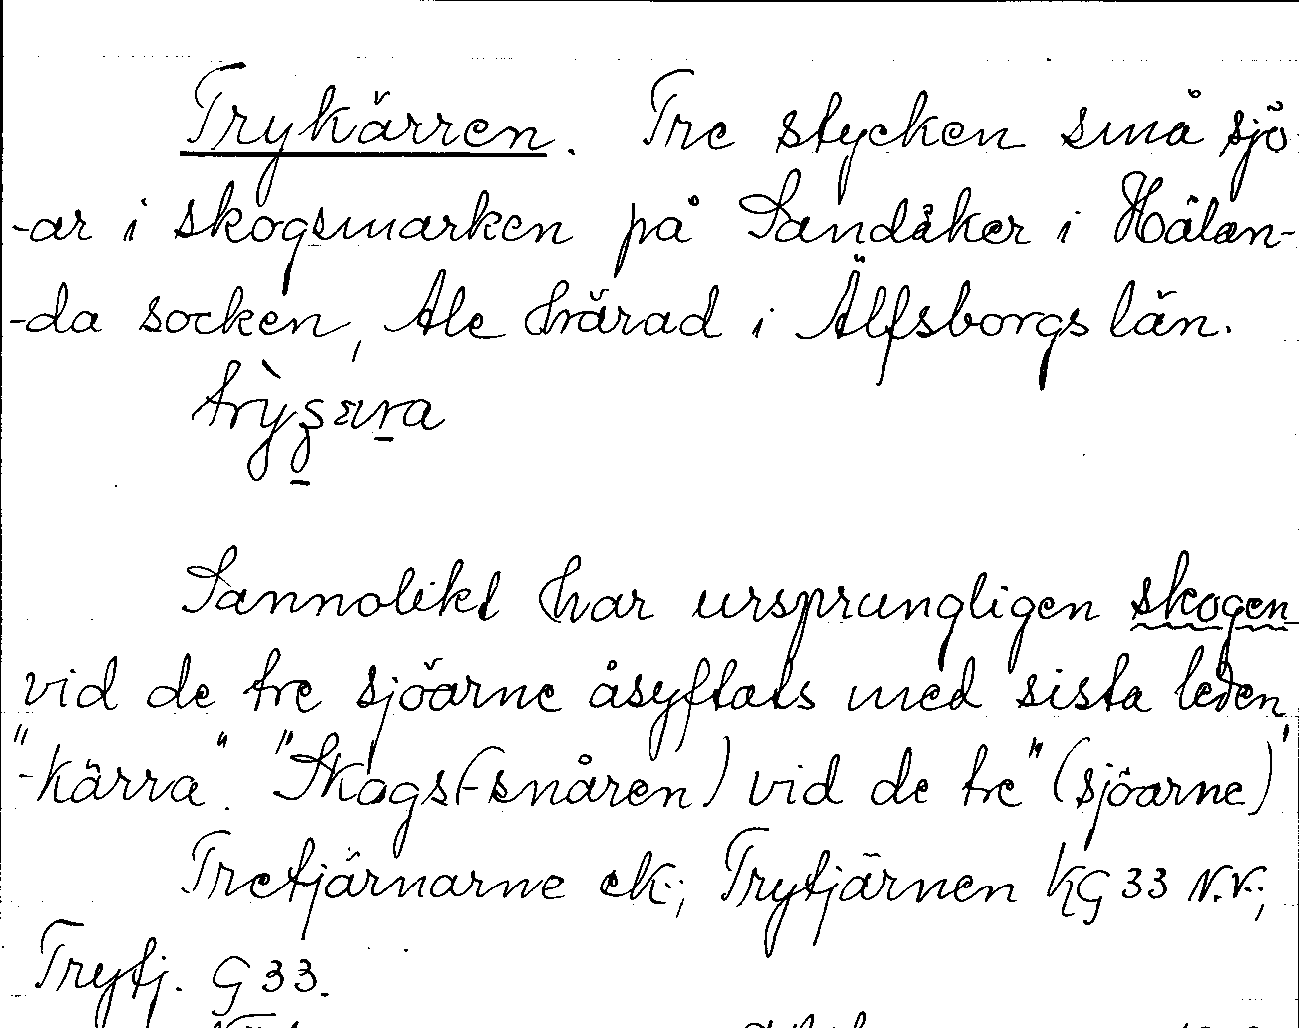 Trykärren. Tre stycken små sjö
-ar i skogsmarken på Sandåker i Hålan-
-da socken, Ale härad i Älfsborgs län.
Sannolikt har ursprungligen skogen
vid de tre sjöarne åsyftats med sista leden,
"-kärra". "Skogs(-snåren) vid de tre" (sjöarne)
Tretjärnarne ek.; Trytjärnen KG 33 N.V.;
Trytj. G 33.